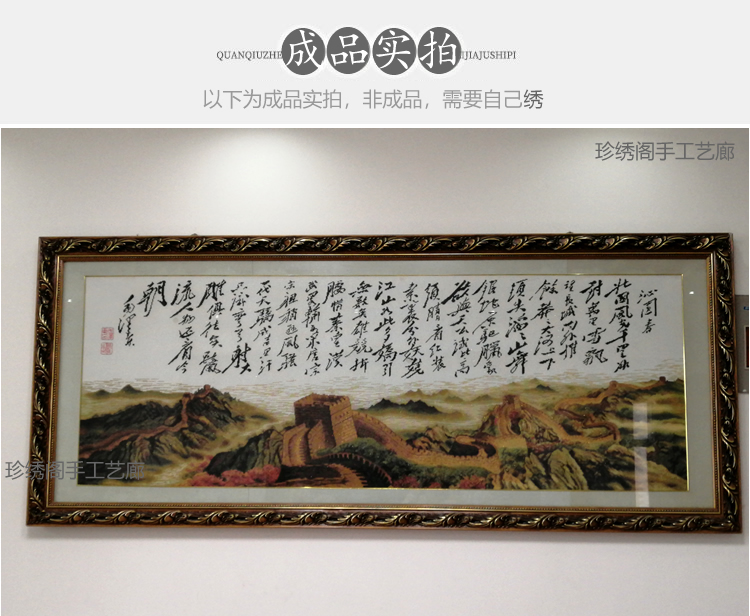 QUANQIUZHE 成品实拍 IJIAJUSHIPI
以下为成品实拍，非成品，需要自己绣
珍绣阁手工艺廊
沁园春
北国风光千里冰
封万里雪飘
望长城内外惟
馀莽莽大河上下
顿失滔滔山舞
银蛇原驰腊象
欲与天公试比高
须晴日看红装
素裹分外妖娆
江山如此多娇引
无数英雄竞折
腰惜秦皇汉
武略输文采唐宗
宋祖稍逊风骚
一代天骄成吉思汗
只识弯弓射大
雕俱往矣数
风流人物还看今
朝
毛泽东
珍绣阁手工艺廊